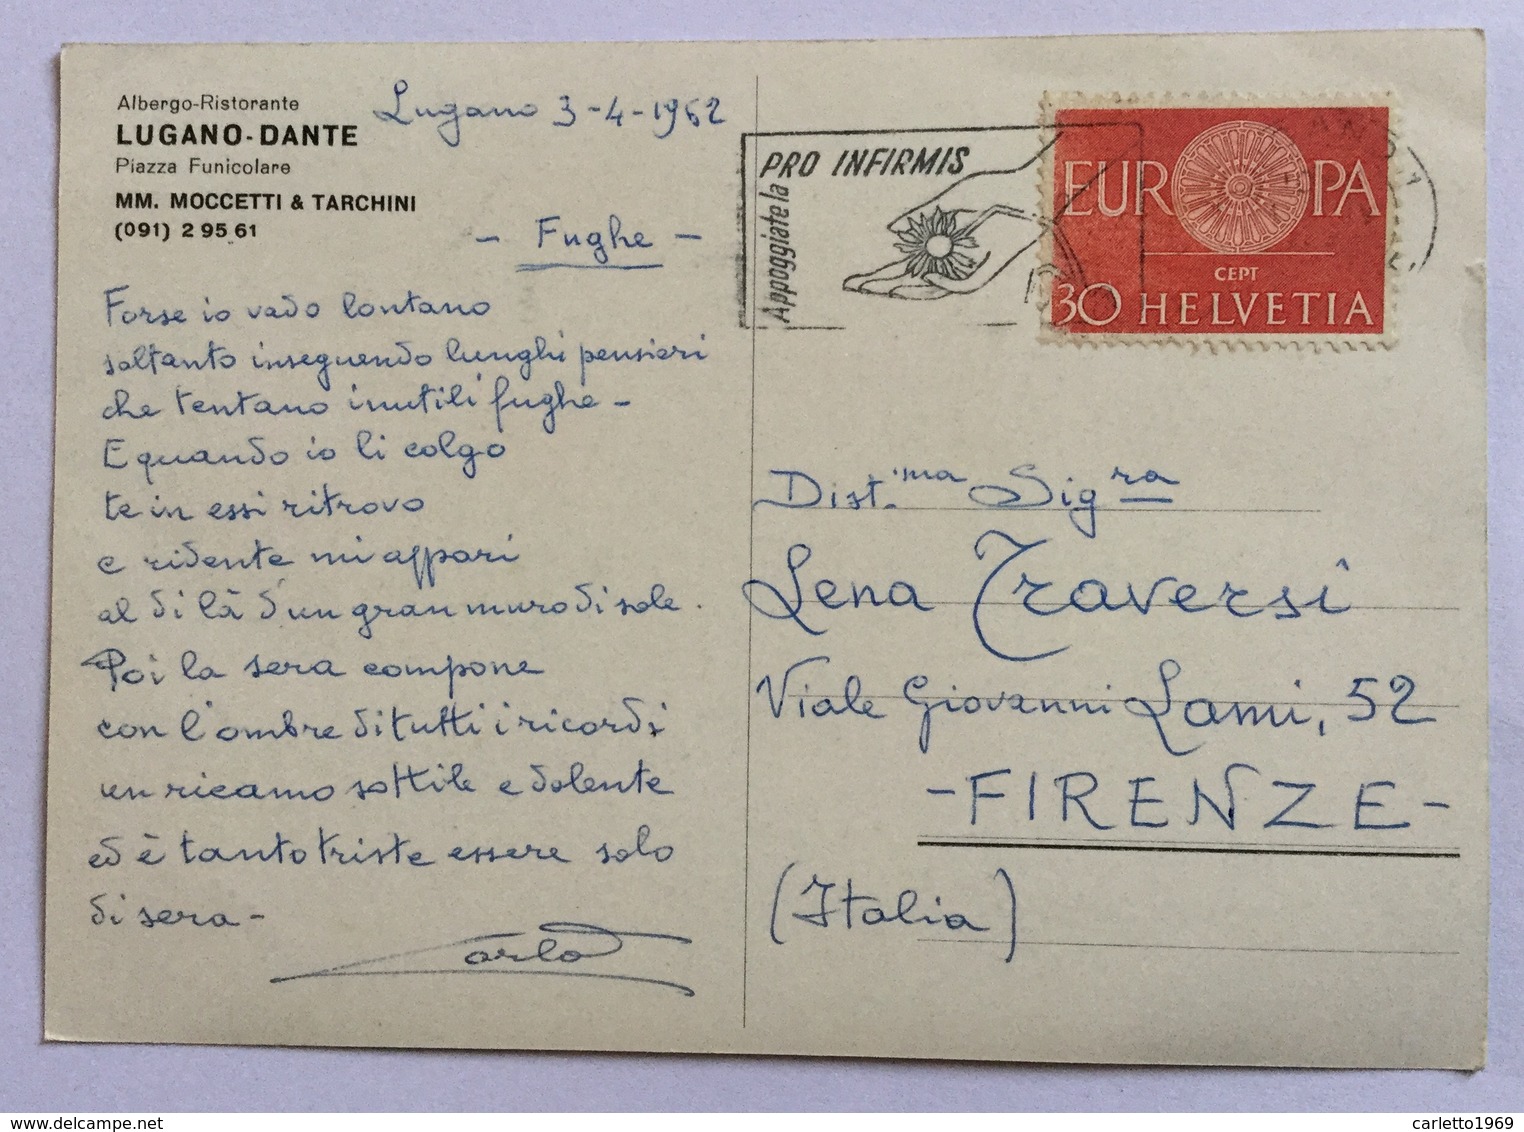 Albergo-Ristorante
LUGANO-DANTE
Piazza Funicolare
MM. MOCCETTI & TARCHINI
(091) 2 95 61
Lugano 3-4-1962
- Fughe -
Forse io vado lontano
soltanto inseguendo lunghi pensieri
che tentano inutili fughe -
E quando io li colgo
te in essi ritrovo
e ridente mi appari
al di là d'un gran muro di sole.
Poi la sera compone
con l'ombre di tutti i ricordi
un ricamo sottile e dolente
ed è tanto triste essere solo
di sera -
Carlo
PRO INFIRMIS
Appoggiate la
EUROPA
CEPT
30 HELVETIA
Dist.ma Sigra
Lena Traversi
Viale Giovanni Lami, 52
- FIRENZE -
(Italia)
delcampe.net
carletto1969